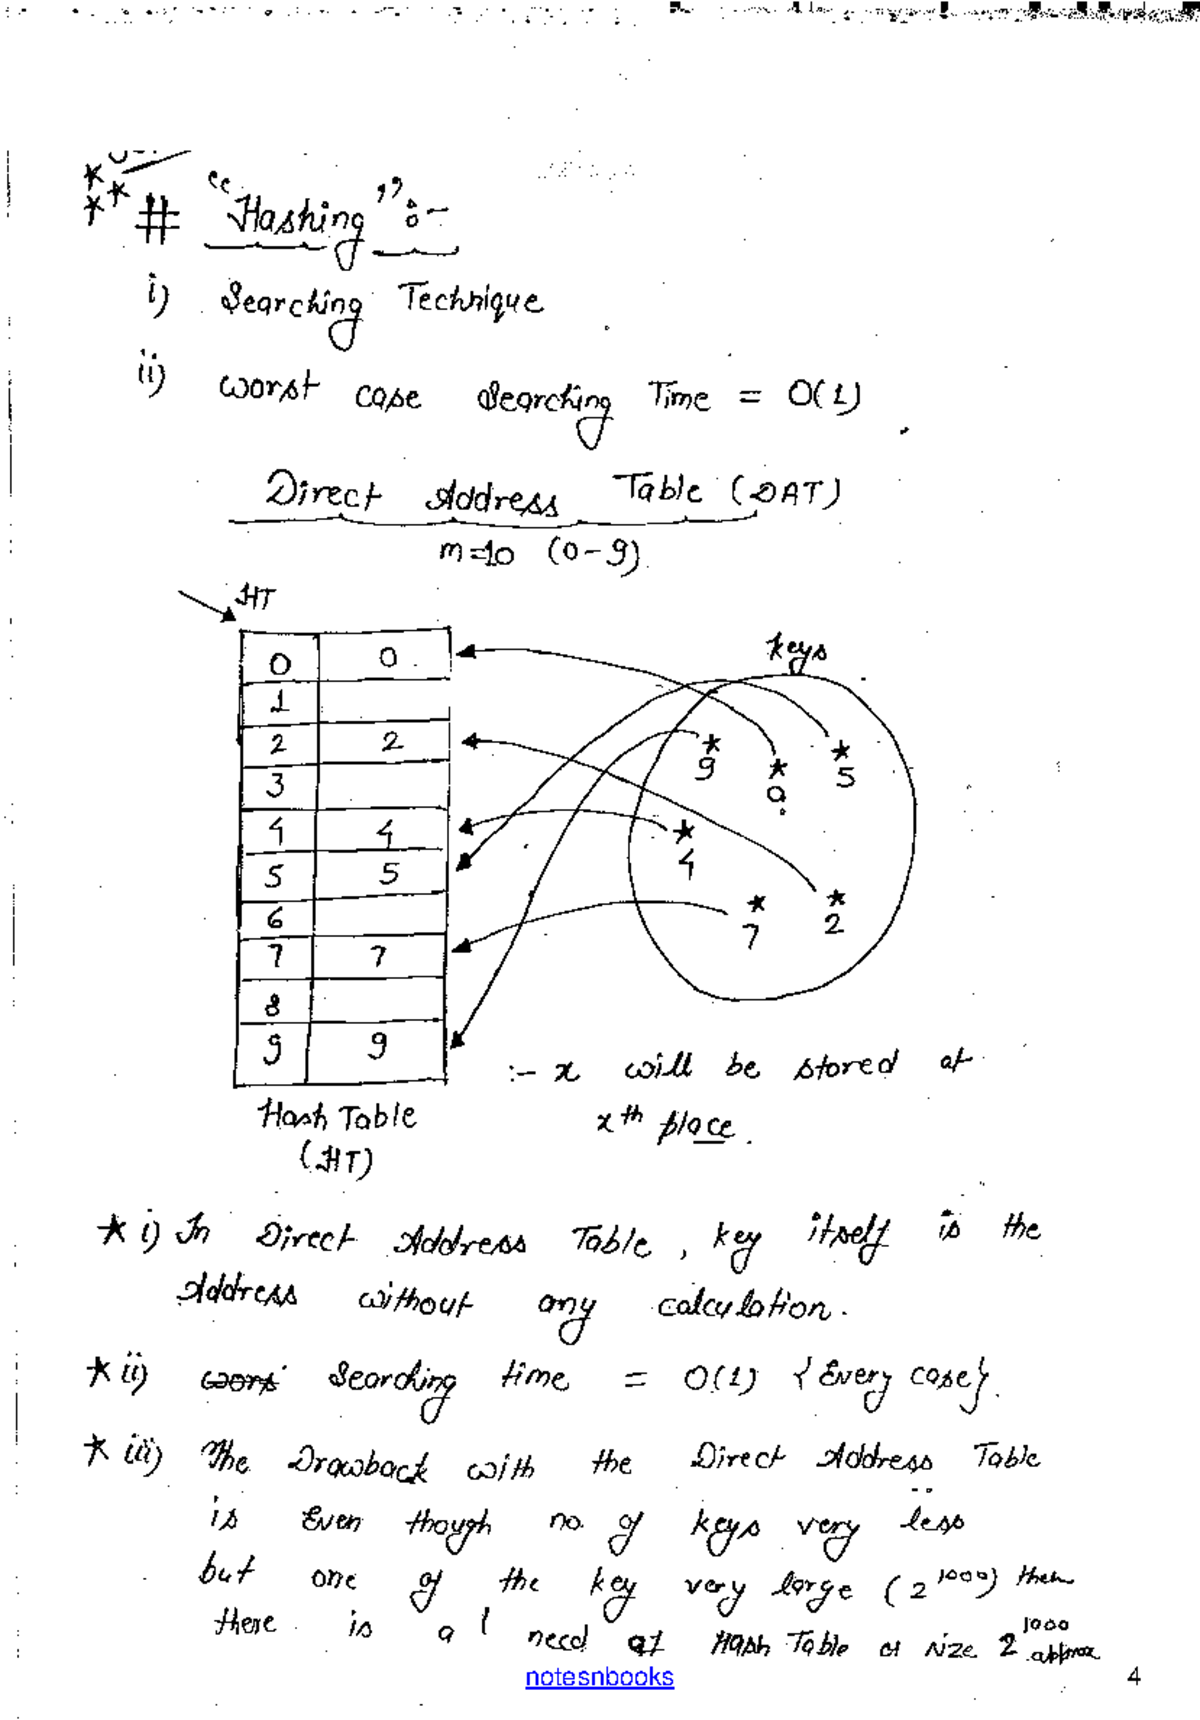 # "Hashing" :-
i) Searching Technique
ii) worst case Searching Time = O(1)
Direct Address Table (DAT)
m=10 (0-9)
HT
keys
0 0
1
2 2
3
4 4
5 5
6
7 7
8
9 9
9
0
5
4
7
2
:- x will be stored at
xth place.
Hash Table
(HT)
* i) In Direct Address Table, key itself is the
Address without any calculation.
* ii) Searching time = O(1) {Every case}.
* iii) The Drawback with the Direct Address Table
is Even though no. of keys very less
but one of the key very large (2^1000) then
there is a need of Hash Table of size 2^1000 approx
notesnbooks
4